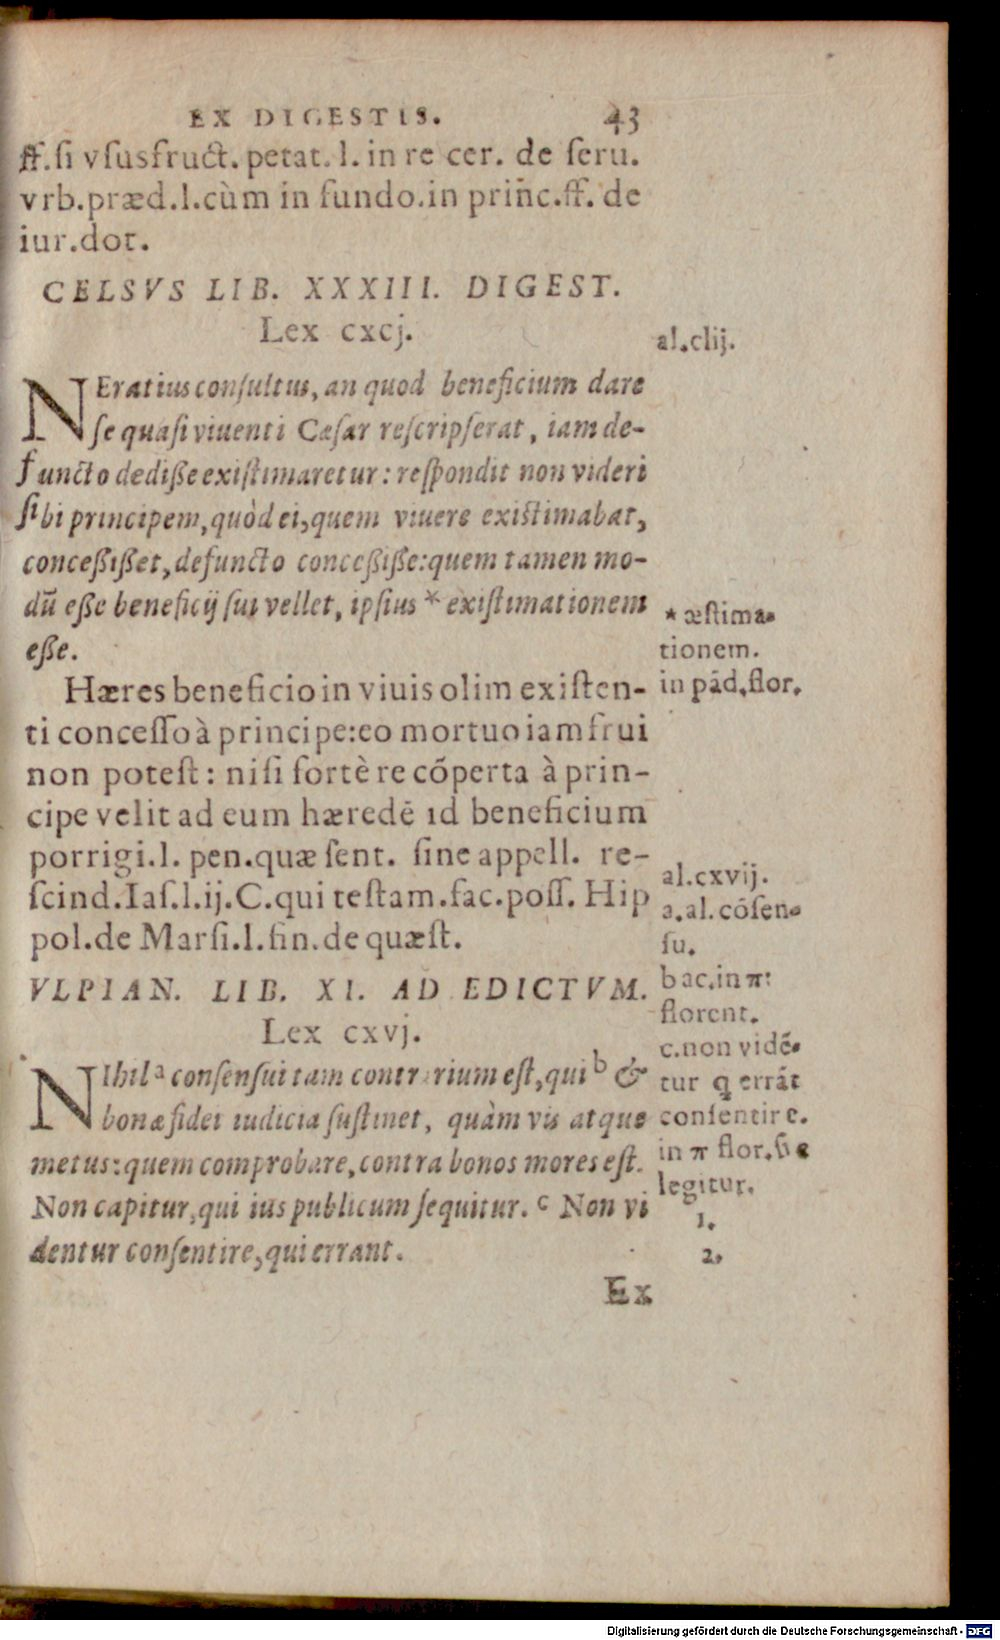 EX DIGESTIS. 43
ff.si vſusfruct. petat. l. in re cer. de ſeru.
vrb.præd.l.cùm in fundo.in prin̄c.ff. de
iur.dot.
CELSVS LIB. XXXIII. DIGEST.
Lex cxcj.
al.clij.
NEratius conſultus, an quod beneficium dare
ſe quaſi viuenti Cæſar reſcripſerat, iam de-
functo dediſſe exiſtimaretur: reſpondit non videri
ſibi principem, quòd ei, quem viuere exiſtimabat,
conceßißet, defuncto conceßiße: quem tamen mo-
dũ eße beneficij ſui vellet, ipſius * exiſtimationem
eße.
* æſtima-
tionem.
in pād.flor.
Hæres beneficio in viuis olim exiſten-
ti conceſſo à principe: eo mortuo iam frui
non poteſt: niſi fortè re cõperta à prin-
cipe velit ad eum hæredē id beneficium
porrigi.l. pen.quæ ſent. ſine appell. re-
ſcind.Iaſ.l.ij.C.qui teſtam.fac.poſſ. Hip
pol.de Marſi.l.fin.de quæſt.
VLPIAN. LIB. XI. AD EDICTVM.
Lex cxvj.
NIhil a conſenſui tam contrarium eſt, qui b &
bonæ fidei iudicia ſuſtinet, quàm vis atque
metus: quem comprobare, contra bonos mores eſt.
Non capitur, qui ius publicum ſequitur. c Non vi
dentur conſentire, qui errant.
al.cxvij.
a.al.cõſen-
ſu.
b ac.in π:
florent.
c.non vidē-
tur q̨ errāt
conſentire.
in π flor.ſic
legitur.
1.
2.
Ex
Digitalisierung gefördert durch die Deutsche Forschungsgemeinschaft - DFG